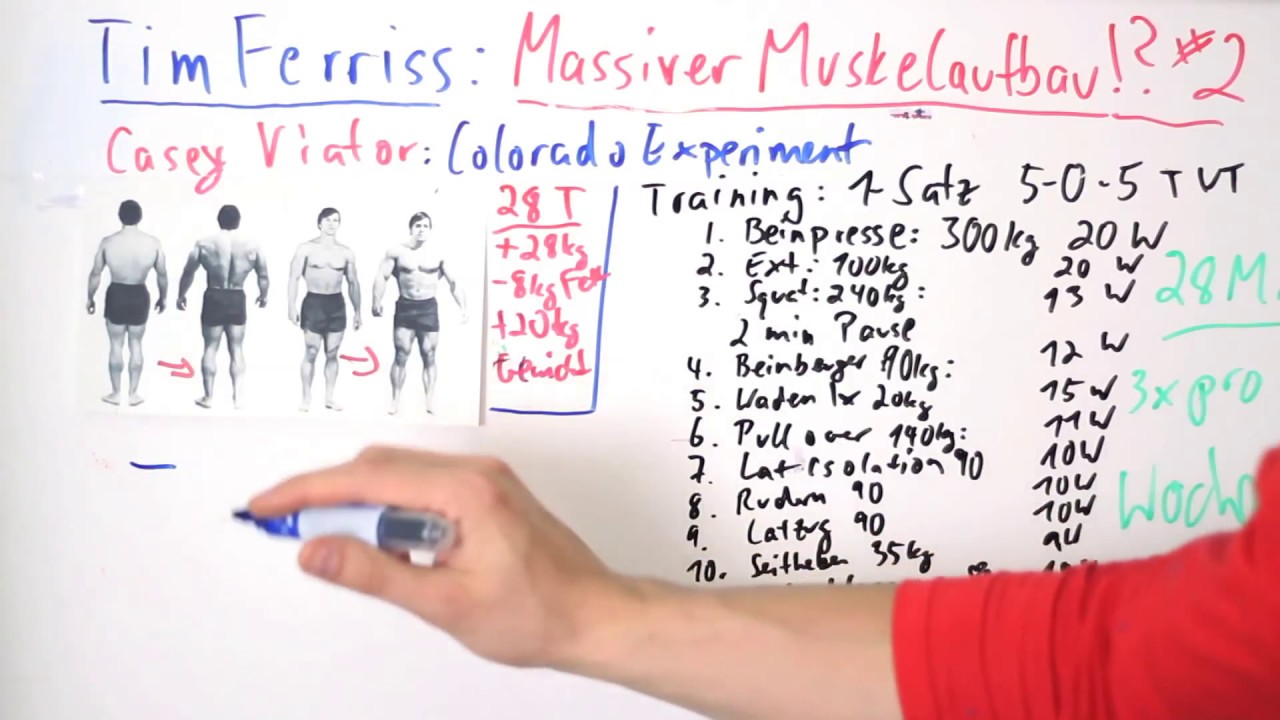 Tim Ferriss: Massiver Muskelaufbau!? #2
Casey Viator: Colorado Experiment
28 T
+28kg
-8kg Fett
+20kg
Gewicht
Training: 1 Satz 5-0-5 TUT
1. Beinpresse: 300kg 20 W
2. Ext.: 100kg 20 W
3. Squat: 240kg: 13 W
2 min Pause
4. Beinbeuger 90kg: 12 W
5. Waden 1x 20kg 15 W
6. Pull over 140kg: 11 W
7. Lat-Isolation 90 10W
8. Rudern 90 10W
9. Latzug 90 10W
10. Seitheben 35kg 9W
28 M
3x pro
Woch